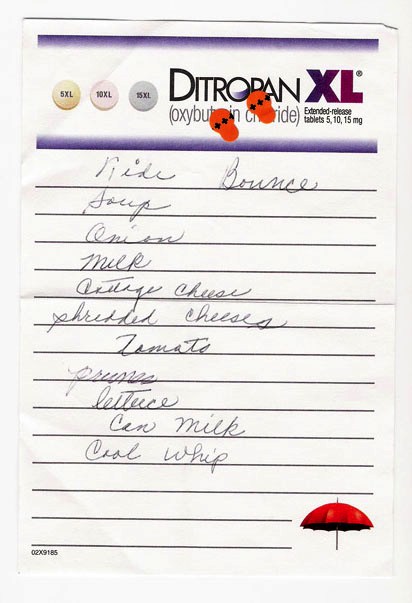 5XL 10XL 15XL
DITROPAN XL®
Extended-release
tablets 5, 10, 15 mg
Bounce
Soup
Onion
Milk
Cottage Cheese
Shredded Cheeses
Tomato
prunes
lettuce
Can Milk
Cool Whip
02X9185